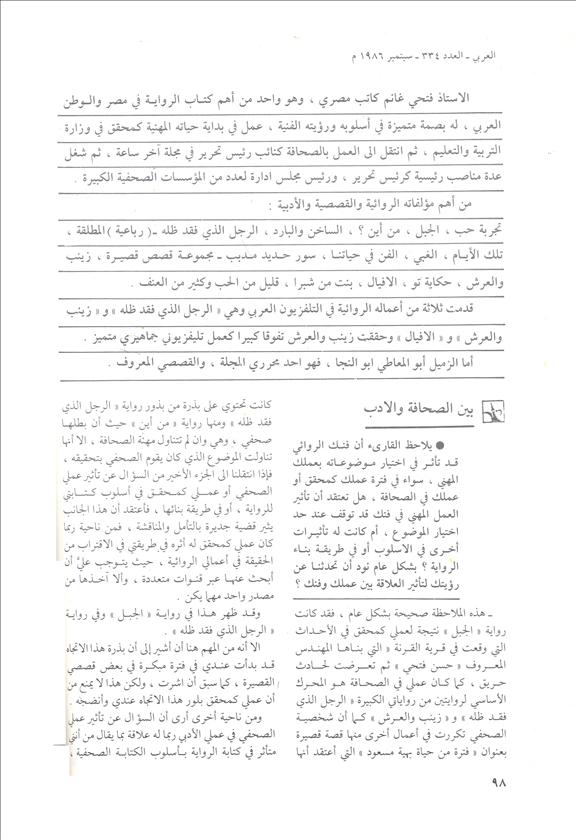 العربي ـ العدد ٣٣٤ ـ سبتمبر ١٩٨٦ م
الاستاذ فتحي غانم كاتب مصري ، وهو واحد من أهم كتاب الرواية في مصر والوطن
العربي ، له بصمة متميزة في أسلوبه ورؤيته الفنية ، عمل في بداية حياته المهنية كمحقق في وزارة
التربية والتعليم ، ثم انتقل الى العمل بالصحافة كنائب رئيس تحرير في مجلة آخر ساعة ، ثم شغل
عدة مناصب رئيسية كرئيس تحرير ، ورئيس مجلس ادارة لعدد من المؤسسات الصحفية الكبيرة .
من أهم مؤلفاته الروائية والقصصية والأدبية :
تجربة حب ، الجبل ، من أين ؟ ، الساخن والبارد ، الرجل الذي فقد ظله ـ( رباعية )المطلقة ،
تلك الأيام ، الغبي ، الفن في حياتنا ، سور حديد مدبب ـ مجموعة قصص قصيرة ، زينب
والعرش ، حكاية تو ، الافيال ، بنت من شبرا ، قليل من الحب وكثير من العنف .
قدمت ثلاثة من أعماله الروائية في التلفزيون العربي وهي « الرجل الذي فقد ظله » و « زينب
والعرش » و « الافيال » وحققت زينب والعرش تفوقا كبيرا كعمل تليفزيوني جماهيري متميز .
أما الزميل أبو المعاطي ابو النجا ، فهو احد محرري المجلة ، والقصصي المعروف .
بين الصحافة والادب
● يلاحظ القارىء أن فنك الروائي
قد تأثر في اختيار موضوعاته بعملك
المهني ، سواء في فترة عملك كمحقق أو
عملك في الصحافة ، هل تعتقد أن تأثير
العمل المهني في فنك قد توقف عند حد
اختيار الموضوع ، أم كانت له تأثيرات
أخرى في الاسلوب أو في طريقة بناء
الرواية ؟ بشكل عام نود أن تحدثنا عن
رؤيتك لتأثير العلاقة بين عملك وفنك ؟
ـ هذه الملاحظة صحيحة بشكل عام ، فقد كانت
رواية « الجبل » نتيجة لعملي كمحقق في الأحداث
التي وقعت في قرية القرنة « التي بناها المهندس
المعروف « حسن فتحي » ثم تعرضت لحادث
حريق ، كما كان عملي في الصحافة هو المحرك
الأساسي لروايتين من رواياتي الكبيرة « الرجل الذي
فقد ظله » و « زينب والعرش » كما أن شخصية
الصحفي تكررت في أعمال أخرى منها قصة قصيرة
بعنوان « فترة من حياة بهية مسعود » التي أعتقد أنها
كانت تحتوي على بذرة من بذور رواية « الرجل الذي
فقد ظله » ومنها رواية « من أين » حيث أن بطلها
صحفي ، وهي وان لم تتناول مهنة الصحافة ، الا أنها
تناولت الموضوع الذي كان يقوم الصحفي بتحقيقه ،
فإذا انتقلنا الى الجزء الأخير من السؤال عن تأثير عملي
الصحفي أو عملي كمحقق في أسلوب كتابتي
للرواية ، أو في طريقة بنائها ، فأعتقد أن هذا الجانب
يثير قضية جديرة بالتأمل والمناقشة ، فمن ناحية ربما
كان عملي كمحقق له أثره في طريقتي في الاقتراب من
الحقيقة في أعمالي الروائية ، حيث يتوجب عليّ أن
أبحث عنها عبر قنوات متعددة ، وألا آخذها من
مصدر واحد مهما يكن .
وقد ظهر هذا في رواية « الجبل » وفي رواية
« الرجل الذي فقد ظله » .
الا أنه من المهم هنا أن أشير إلى أن بذرة هذا الاتجاه
قد بدأت عندي في فترة مبكرة في بعض قصصي
القصيرة ، كما سبق أن اشرت ، ولكن هذا لا يمنع من
أن عملي كمحقق بلور هذا الاتجاه عندي وأنضجه .
ومن ناحية أخرى أرى أن السؤال عن تأثير عملي
الصحفي في عملي الأدبي ربما له علاقة بما يقال من أنني
متأثر في كتابة الرواية بأسلوب الكتابة الصحفية ،
٩٨